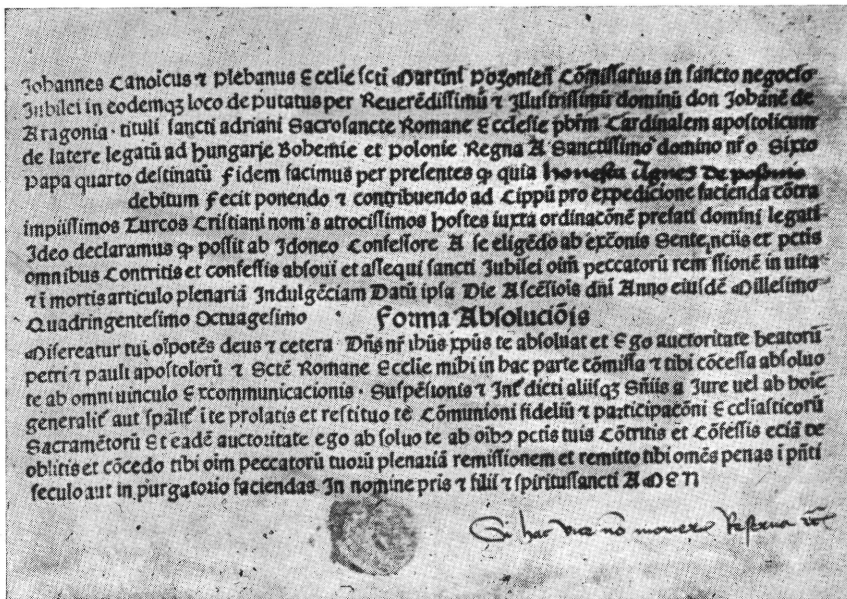 Johannes Canoicus ⁊ Plebanus Ecclie scti Martini Pozoniesi Cōmissarius in sancto negocio
Jubilei in eodemqꝫ loco deputatus per Reuerēdissimū ⁊ Jllustrissimū dominū don Johānē de
Aragonia · tituli sancti adriani Sacrosancte Romane Ecclesie pbrm̄ Cardinalem apostolicum
de latere legatū ad hungarie Bohemie et Polonie Regna A Sanctissimo domino nr̄o Sixto
Papa quarto destinatū Fidem facimus per presentes ꝙ quia honesta Agnes de posonio
debitum Fecit ponendo ⁊ contribuendo ad Cippū pro expedicione facienda cōtra
impiissimos Turcos Cristiani nom's atrocissimos hostes iuxta ordinacōnē prefati domini legati
Jdeo declaramus ꝙ possit ab Jdoneo Confessore A se eligēdo ab excōnis Sentenciis et pctis
omnibus Contritis et confessis absoui et assequi sancti Jubilei oīm peccatorū rem ssionē in uita
⁊ ī mortis articulo plenariā Jndulgēciam Datū ipsa Die Ascēsiois dn̄i Anno eiusdē Millesimo
Quadringentesimo Octuagesimo Forma Absoluciōis
Misereatur tui oīpotēs deus ⁊ cetera Dn̄s nr̄ ihūs xp̄us te absoluat et Ego auctoritate beatorū
petri ⁊ pauli apostolorū ⁊ Sctē Romane Ecclie mihi in hac parte cōmissa ⁊ tibi cōcessa absoluo
te ab omni uinculo Excommunicacionis · Suspēsionis ⁊ Int̄dicti aliisqꝫ Sn̄iis a Jure uel ab hoīe
generalit̄ aut sp̄alit̄ i te prolatis et restituo tē Cōmunioni fideliū ⁊ participacōni Eccliasticorū
Sacramētorū Et eadē auctoritate ego ab soluo te ab oībꝰ pctis tuis Cōtritis et Cōfessis eciā de
oblitis et cōcedo tibi oīm peccatorū tuorū plenariā remissionem et remitto tibi omēs penas i pn̄ti
seculo aut in purgatorio faciendas Jn nomine pris ⁊ filii ⁊ spiritussancti AMEN
Si hac vice nō